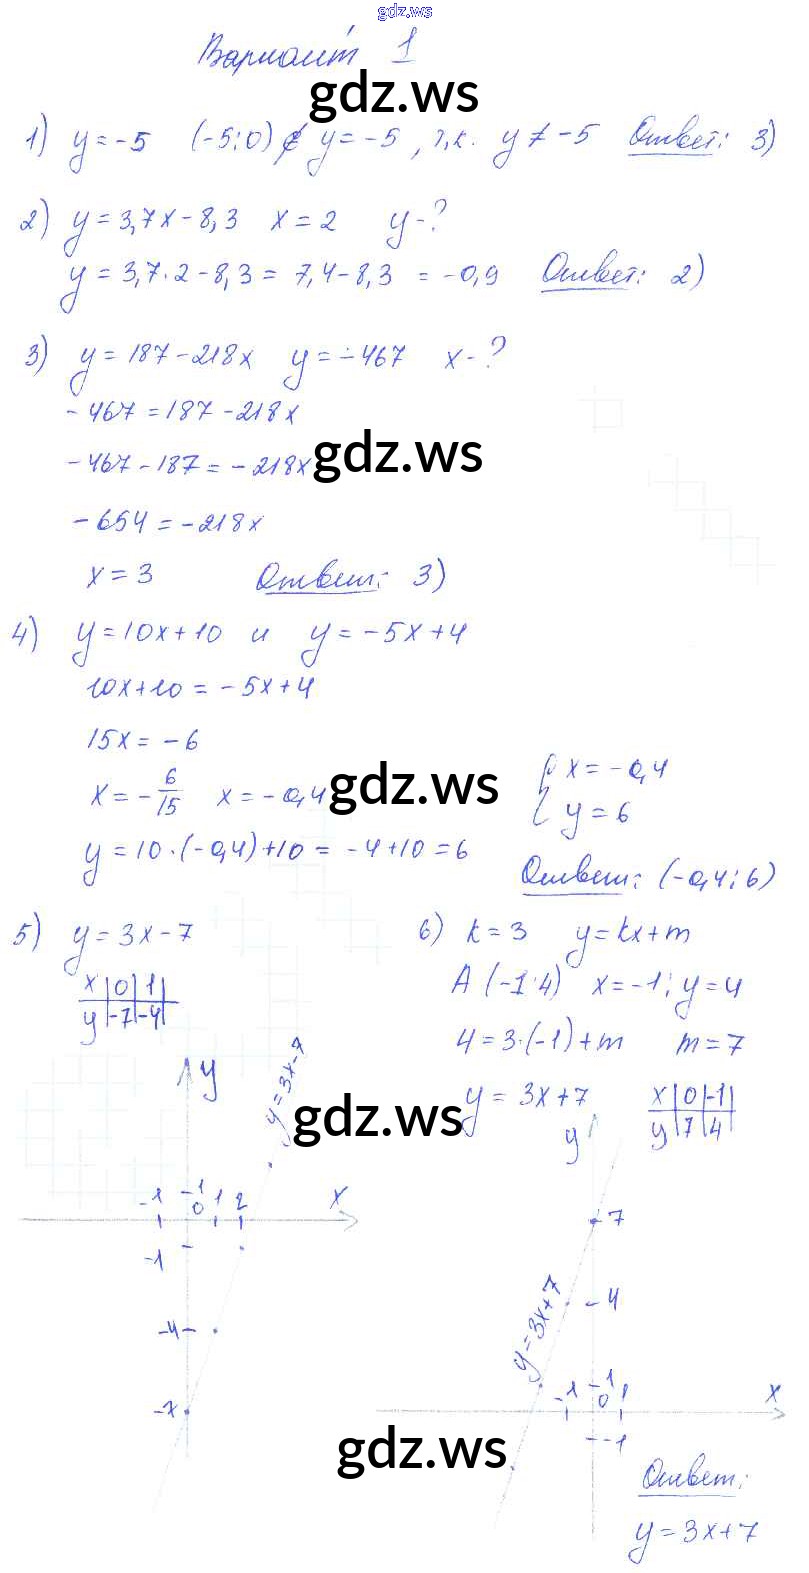 gdz.ws
Вариант 1
gdz.ws
1) y = -5 (-5; 0) ∉ y = -5, т.к. y ≠ -5 Ответ: 3)
2) y = 3,7x - 8,3 x = 2 y - ?
y = 3,7 · 2 - 8,3 = 7,4 - 8,3 = -0,9 Ответ: 2)
3) y = 187 - 218x y = -467 x - ?
-467 = 187 - 218x
-467 - 187 = -218x
gdz.ws
-654 = -218x
x = 3 Ответ: 3)
4) y = 10x + 10 и y = -5x + 4
10x + 10 = -5x + 4
15x = -6
x = -6/15 x = -0,4
gdz.ws
{ x = -0,4
y = 6
y = 10 · (-0,4) + 10 = -4 + 10 = 6
Ответ: (-0,4; 6)
5) y = 3x - 7
x | 0 | 1 |
y | -7 | -4 |
y
y = 3x - 7
gdz.ws
-1 -1 0 1 2 x
-1
-4
-7
6) k = 3 y = kx + m
A (-1; 4) x = -1; y = 4
4 = 3 · (-1) + m m = 7
y = 3x + 7
x | 0 | -1 |
y | 7 | 4 |
y
7
4
y = 3x + 7
-1 -1 0 1 x
-1
gdz.ws
Ответ:
y = 3x + 7